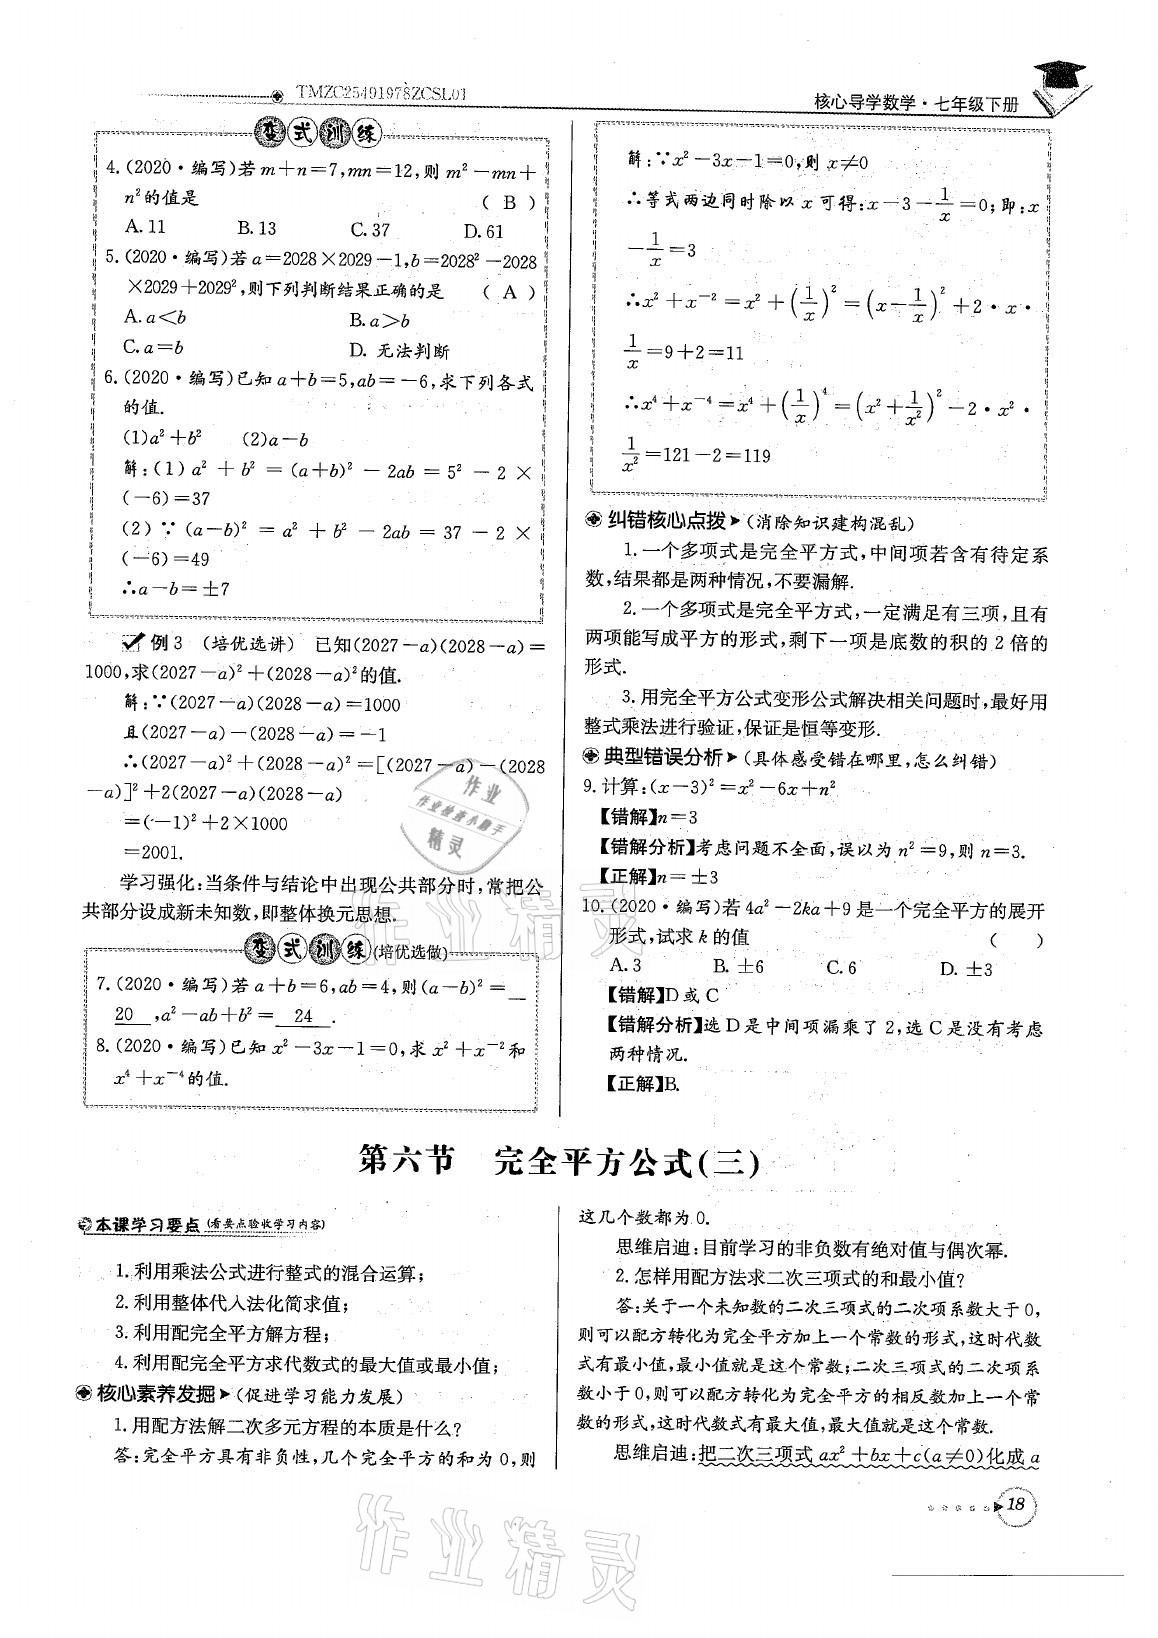 TMZC25491978ZCSL01
核心导学数学·七年级下册
变式训练
4.(2020·编写)若m+n=7,mn=12,则m²-mn+
n²的值是 ( B )
A.11 B.13 C.37 D.61
5.(2020·编写)若a=2028×2029-1,b=2028²-2028
×2029+2029²,则下列判断结果正确的是 ( A )
A.a<b B.a>b
C.a=b D. 无法判断
6.(2020·编写)已知a+b=5,ab=-6,求下列各式
的值.
(1)a²+b² (2)a-b
解:(1) a² + b² = (a+b)² - 2ab = 5² - 2 ×
(-6)=37
(2) ∵ (a-b)² = a² + b² - 2ab = 37 - 2 ×
(-6)=49
∴a-b=±7
例3 (培优选讲) 已知(2027-a)(2028-a)=
1000,求(2027-a)²+(2028-a)²的值.
解:∵(2027-a)(2028-a)=1000
且(2027-a)-(2028-a)=-1
∴(2027-a)²+(2028-a)²=[(2027-a)-(2028
-a)]²+2(2027-a)(2028-a)
=(-1)²+2×1000
=2001.
学习强化:当条件与结论中出现公共部分时,常把公
共部分设成新未知数,即整体换元思想.
变式训练(培优选做)
7.(2020·编写)若a+b=6,ab=4,则(a-b)²=
20 ,a²-ab+b²= 24 .
8.(2020·编写)已知x²-3x-1=0,求x²+x⁻²和
x⁴+x⁻⁴的值.
解:∵x²-3x-1=0,则x≠0
∴等式两边同时除以x可得:x-3-1/x=0;即:x
-1/x=3
∴x²+x⁻²=x²+(1/x)²=(x-1/x)²+2·x·
1/x=9+2=11
∴x⁴+x⁻⁴=x⁴+(1/x)⁴=(x²+1/x²)²-2·x²·
1/x²=121-2=119
纠错核心点拨(消除知识建构混乱)
1.一个多项式是完全平方式,中间项若含有待定系
数,结果都是两种情况,不要漏解.
2.一个多项式是完全平方式,一定满足有三项,且有
两项能写成平方的形式,剩下一项是底数的积的2倍的
形式.
3.用完全平方公式变形公式解决相关问题时,最好用
整式乘法进行验证,保证是恒等变形.
典型错误分析(具体感受错在哪里,怎么纠错)
9.计算:(x-3)²=x²-6x+n²
【错解】n=3
【错解分析】考虑问题不全面,误以为n²=9,则n=3.
【正解】n=±3
10.(2020·编写)若4a²-2ka+9是一个完全平方的展开
形式,试求k的值 ( )
A.3 B.±6 C.6 D.±3
【错解】D或C
【错解分析】选D是中间项漏乘了2,选C是没有考虑
两种情况.
【正解】B.
第六节 完全平方公式(三)
本课学习要点(看要点验收学习内容)
1.利用乘法公式进行整式的混合运算;
2.利用整体代入法化简求值;
3.利用配完全平方解方程;
4.利用配完全平方求代数式的最大值或最小值;
核心素养发掘(促进学习能力发展)
1.用配方法解二次多元方程的本质是什么?
答:完全平方具有非负性,几个完全平方的和为0,则
这几个数都为0.
思维启迪:目前学习的非负数有绝对值与偶次幂.
2.怎样用配方法求二次三项式的和最小值?
答:关于一个未知数的二次三项式的二次项系数大于0,
则可以配方转化为完全平方加上一个常数的形式,这时代数
式有最小值,最小值就是这个常数;二次三项式的二次项系
数小于0,则可以配方转化为完全平方的相反数加上一个常
数的形式,这时代数式有最大值,最大值就是这个常数.
思维启迪:把二次三项式ax²+bx+c(a≠0)化成a
18
作业
作业检查小助手
精灵
作业精灵
作业精灵